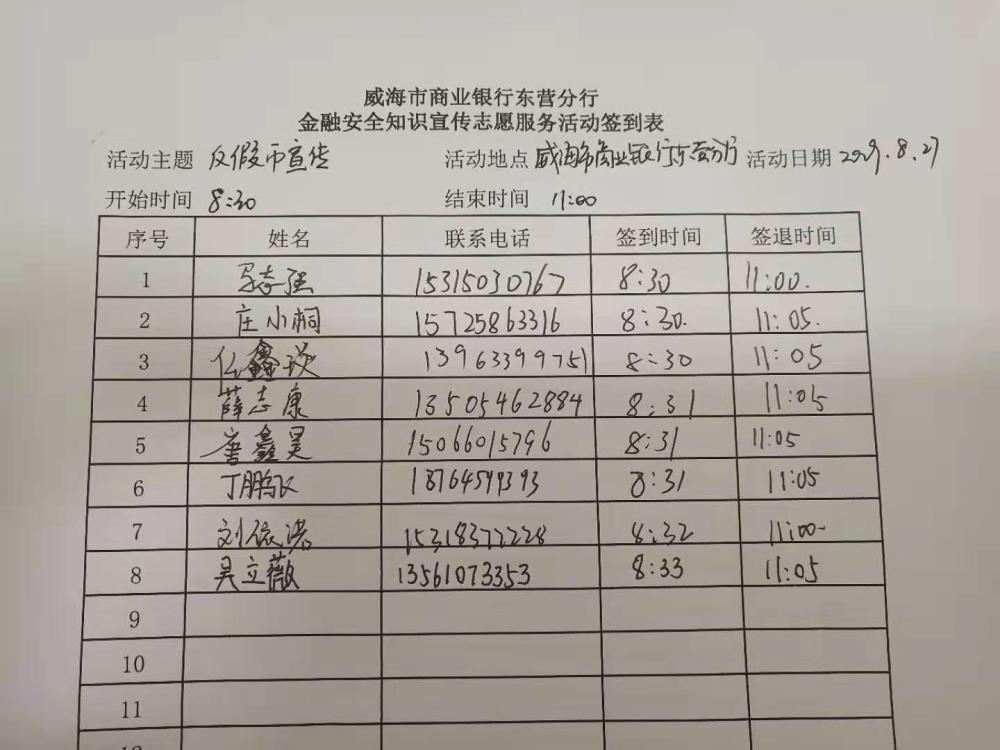 威海市商业银行东营分行
金融安全知识宣传志愿服务活动签到表
活动主题 反假币宣传 活动地点 威海市商业银行东营分行 活动日期 8.27
开始时间 8:30 结束时间 11:00
序号 姓名 联系电话 签到时间 签退时间
1 志强 15315030767 8:30 11:00.
2 庄小桐 15725863316 8:30. 11:05.
3 鑫 13963399751 8:30 11:05
4 薛志康 13505462884 8:31 11:05
5 唐鑫昊 15066015796 8:31 11:05
6 丁鹏 8:31 11:05
7 刘 15318372228 8:32 11:00
8 吴立薇 13561073353 8:33 11:05
9
10
11